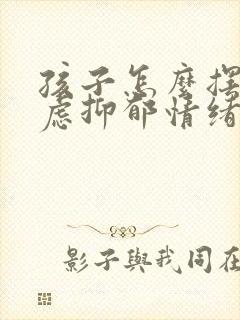 孩子怎麼擺
慮抑郁情緒
影子與我同在